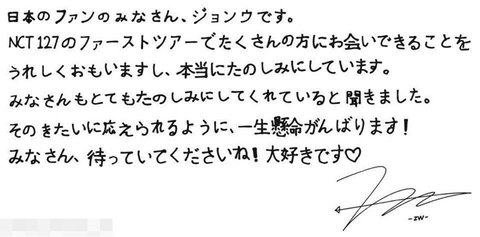 日本のファンのみなさん、ジョンウです。
NCT 127のファーストツアーでたくさんの方にお会いできることを
うれしくおもいますし、本当にたのしみにしています。
みなさんもとてもたのしみにしてくれていると聞きました。
そのきたいに応えられるように、一生懸命がんばります!
みなさん、待っていてくださいね!大好きです♡
-zw-